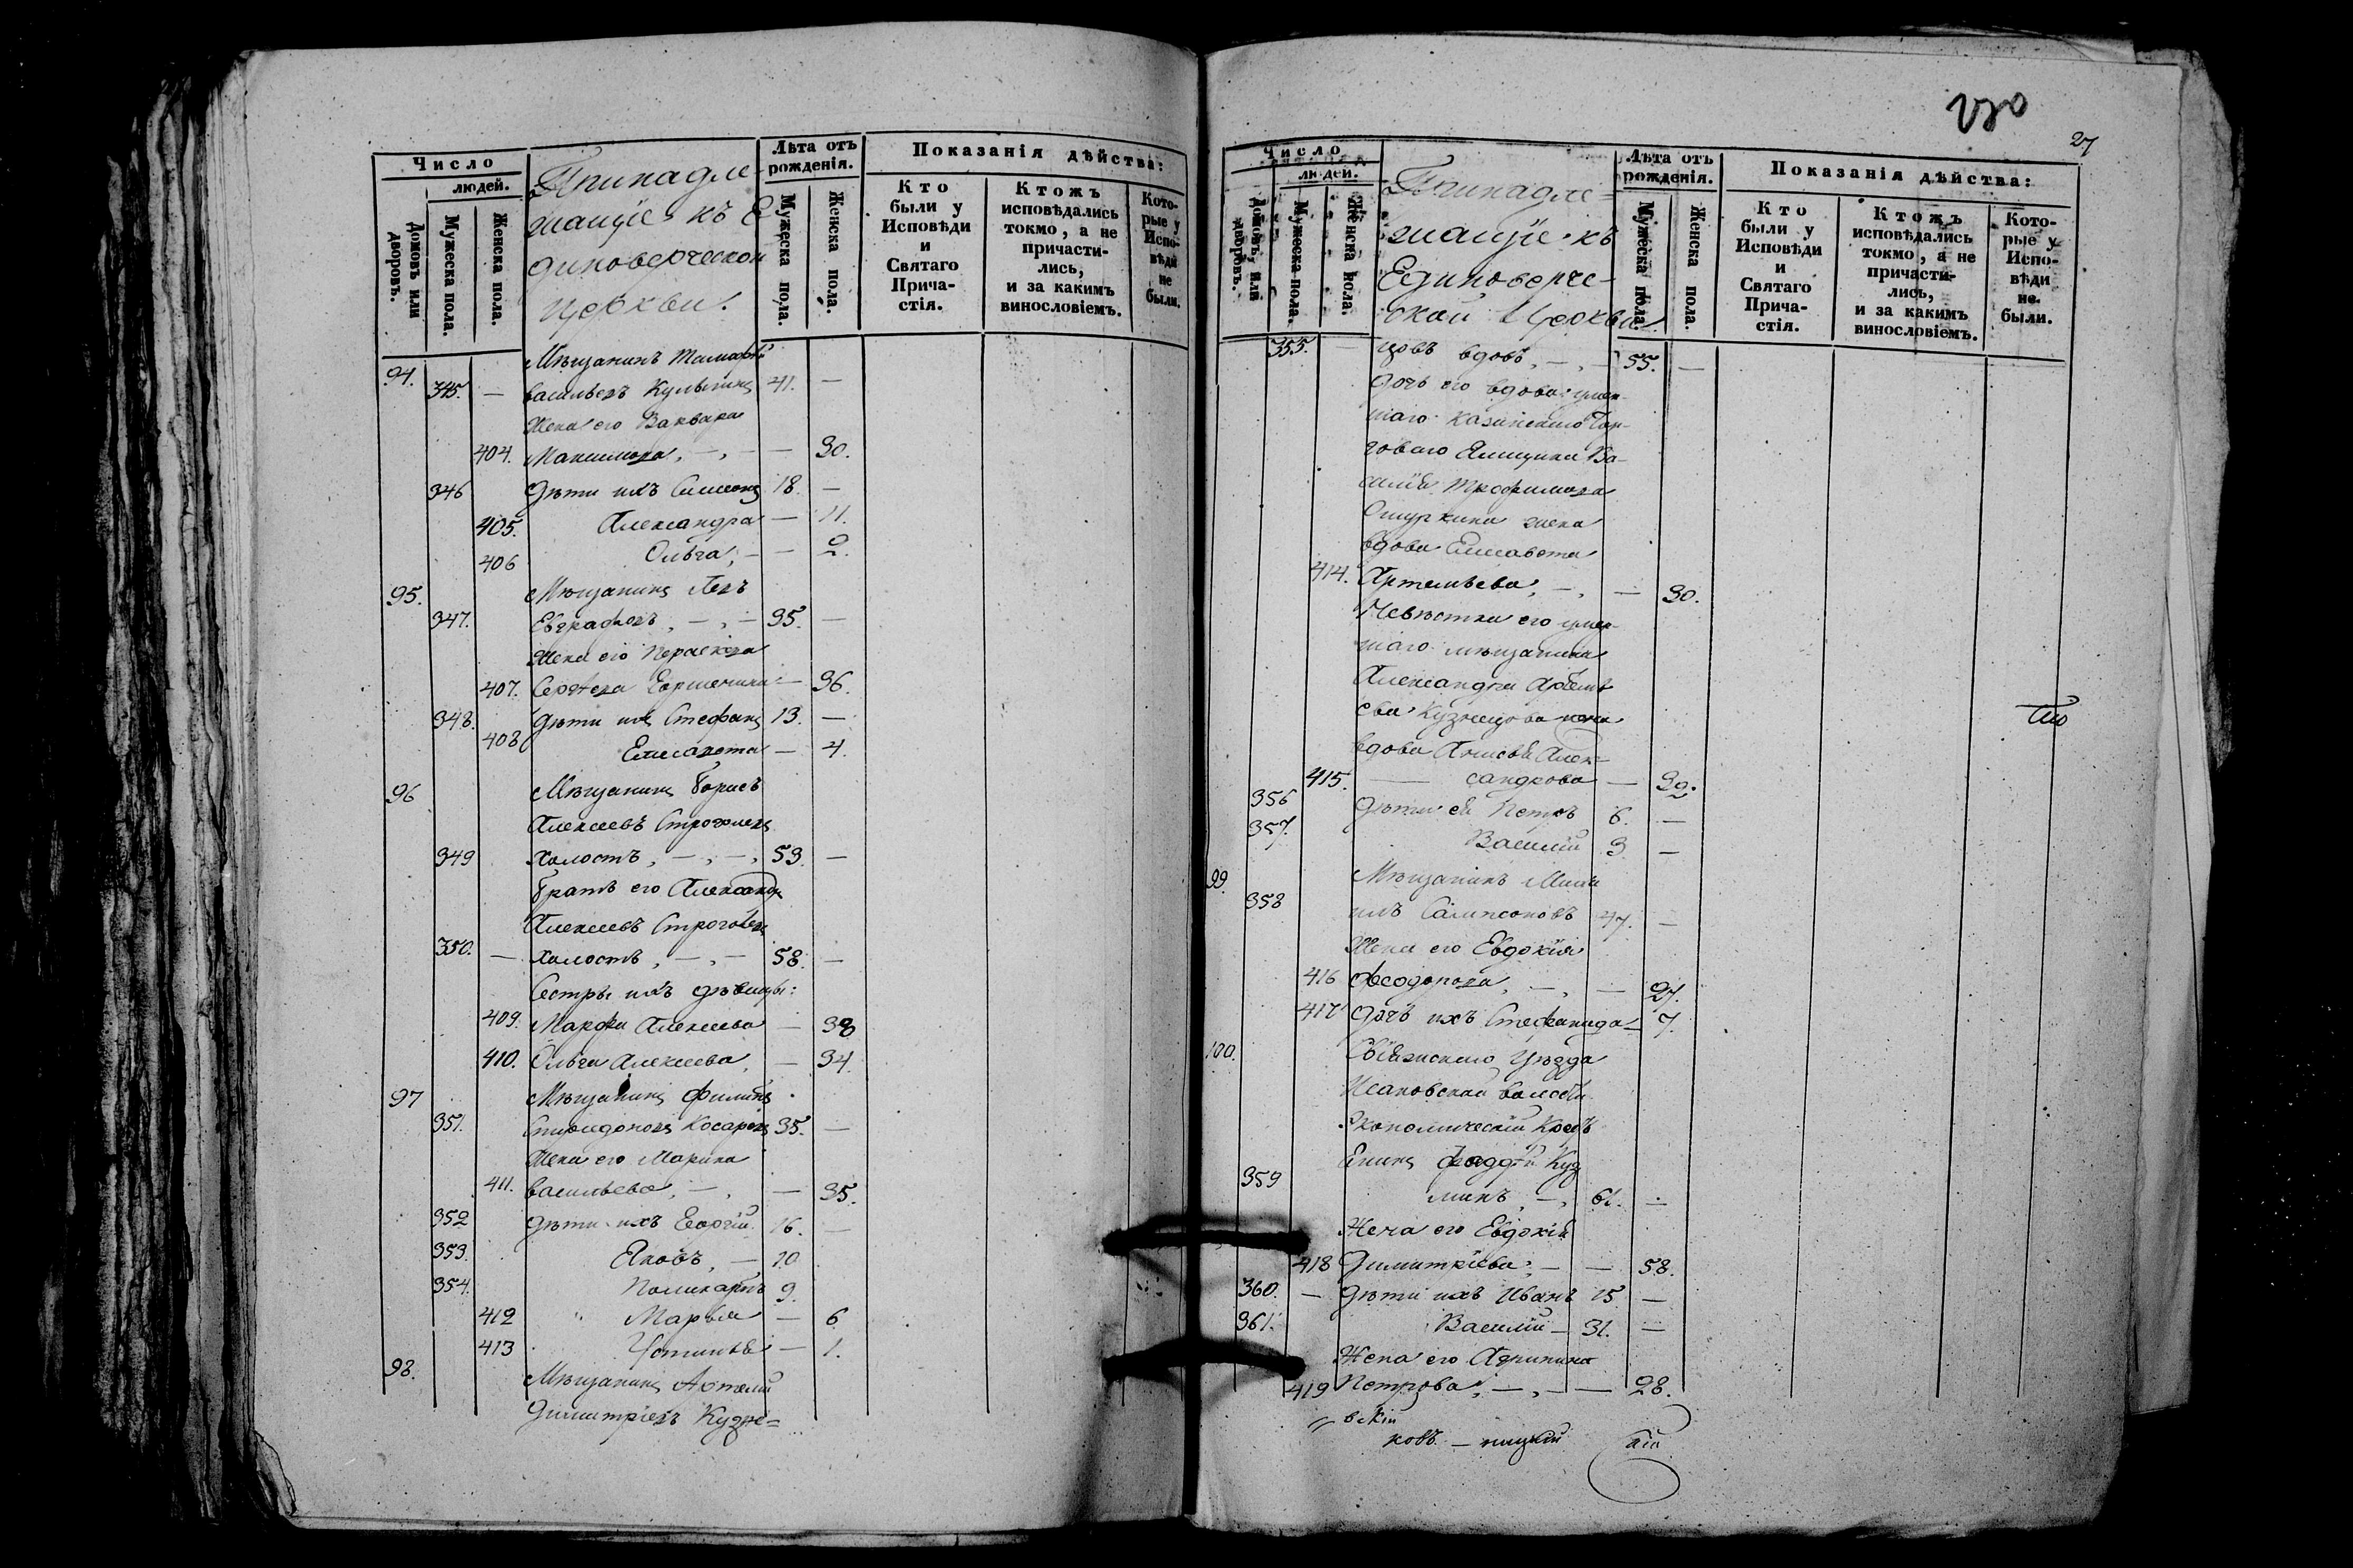 Число
людей.
Домовъ или дворовъ.
Мужеска пола.
Женска пола.
Принадле-
жащіе къ Е
диноверческой
церкви.
Лѣта отъ рожденія.
Мужеска пола.
Женска пола.
Показанія дѣйства:
Кто были у Исповѣди и Святаго Прича-стія.
Ктожъ исповѣдались токмо, а не причасти-лись, и за какимъ винословіемъ.
Кото-рые у Испо-вѣди не были.
94. Мѣщанинъ Тимофей
345. — Васильевъ Кулыгинъ 41. —
Жена его Варвара
404. Максимова, — , — — 30.
346 Дѣти ихъ Симеонъ 18. —
405. Александра — 11.
406 Ольга, — — 2.
95. Мѣщанинъ Левъ
347. Евграфовъ, — , — 35. —
Жена его Параскева
407. Сергѣева — 36.
348. Дѣти ихъ Стефанъ 13. —
408 Елисавета — 4.
96 Мѣщанинъ Борисъ
Алексеевъ
349 холостъ, — , — , 53. —
братъ его Александръ
Алексеевъ
350. — холостъ, — , — 58. —
Сестры ихъ дѣвицы:
409. Марфа Алексеева — 38
410. Ольга Алексеева, — 34.
97 Мѣщанинъ Филипъ
351. Спиридоновъ Косаревъ 35. —
Жена его Марина
411. Васильева, — , — 35.
352 Дѣти ихъ Георгій 16. —
353. Яковъ, — , 10
354. Поликарпъ 9.
412 " Марья — 6.
413 Устинья — 1.
98. Мѣщанинъ Артемій
Димитріевъ Кузне=
27
Число
людей.
Домовъ или дворовъ.
Мужеска пола.
Женска пола.
Принадле=
жащіе къ
Единоверче-
ской Церкви.
Лѣта отъ рожденія.
Мужеска пола.
Женска пола.
Показанія дѣйства:
Кто были у Исповѣди и Святаго Прича-стія.
Ктожъ исповѣдались токмо, а не причасти-лись, и за какимъ винословіемъ.
Кото-рые у Испо-вѣди не были.
355. — цовъ вдовъ, — , — 55. —
Дочь его вдова умер-
шаго Казанскаго Тор-
говаго Ямщика Ва-
силія Трофимова
жена
вдова Елисавета
414. Артемьева, — , — 30.
Невѣстка его умер-
шаго мѣщанина
Александра Артемь
ева Кузнецова жена
вдова Анисья Алек-
415. — сандрова — 32.
356 Дѣти ея Петръ 6. —
357. Василій 3. —
99. Мѣщанинъ Миха
358 илъ Сампсоновъ 47. —
Жена его Евдокія
416 Феодорова, — , — 27.
417 Дочь ихъ Стефанида — 7.
100. Свіяжскаго Уѣзда
волости
Экономическій Крест
янинъ Фаддей Куз
359 минъ, — , 61. —
Жена его Евдокія
418 Димитріева, — — 58.
360. — Дѣти ихъ Иванъ 15 —
361. Василій — 31. —
Жена его Агрипина
419 Петрова, — , — — 28.